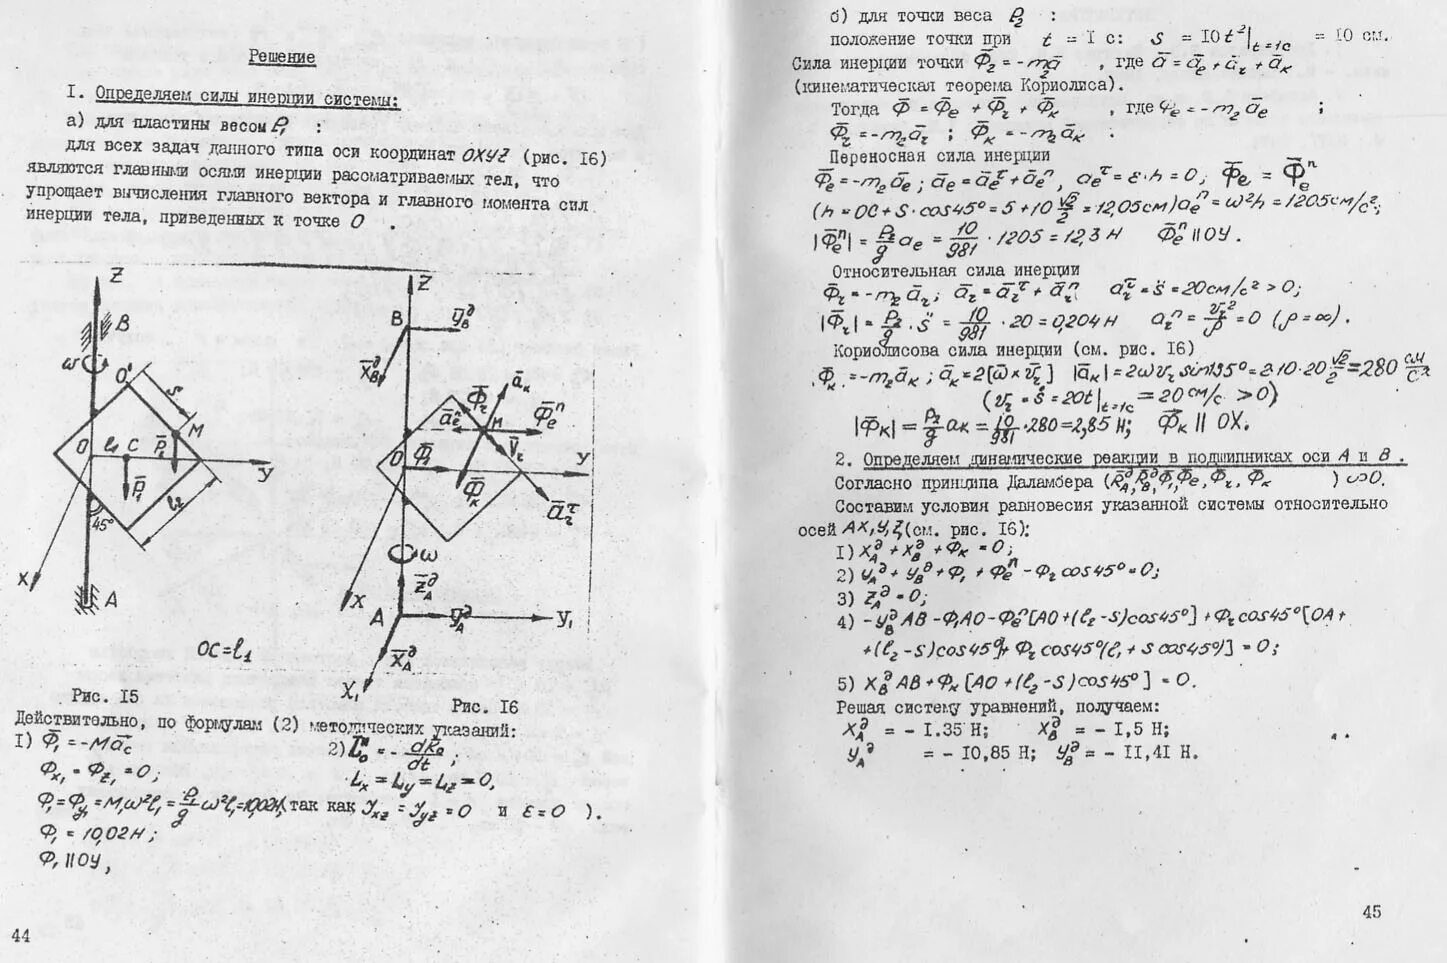 Решение
I. Определяем силы инерции системы:
а) для пластины весом P̄₁ :
для всех задач данного типа оси координат OXYZ (рис. 16)
являются главными осями инерции рассматриваемых тел, что
упрощает вычисления главного вектора и главного момента сил
инерции тела, приведенных к точке O .
Z
B
ω
O'
S
M
O
l₁ C
P̄₁
Y
l₂
45°
X
A
OC=l₁
Рис. 15
Z
B
X̄
ā
Φ̄
M
V̄
O
Y
ω
X
A
Y₁
X₁
Рис. 16
Действительно, по формулам (2) методических указаний:
I) Φ̄₁ = -Mā_C
2)
Φ_x₁ = Φ_z₁ = 0;
L_x = L_y = L_z = 0,
так как J_xz = J_yz = 0 и ε = 0 ).
Φ₁ = 10,02H;
Φ₁ ∥ OY,
44
б) для точки веса P̄₂ :
положение точки при t = I с: S = I0t²|t=1c = I0 см.
Сила инерции точки Φ̄₂ = -m₂ā , где ā = ā_e + ā_r + ā_k
(кинематическая теорема Кориолиса).
Тогда Φ̄ = Φ̄_e + Φ̄_r + Φ̄_k , где Φ̄_e = -m₂ā_e ;
Φ̄_r = -m₂ā_r ; Φ̄_k = -m₂ā_k .
Переносная сила инерции
Φ̄_e = -m₂ā_e ; ā_e = ā_e^τ + ā_e^n , a_e^τ = ε·h = 0; Φ̄_e = Φ̄_e^n
(h = OC + S·cos45° = 5 + 10 √2/2 = 12,05см) a_e^n = ω²h = 1205см/с²;
|Φ̄_e^n| = P₂/g a_e = 10/981 · 1205 = 12,3 H Φ̄_e^n ∥ OY .
Относительная сила инерции
Φ̄_r = -m₂ā_r ; ā_r = ā_r^τ + ā_r^n a_r^τ = S̈ = 20см/с² > 0;
|Φ̄_r| = P₂/g · S̈ = 10/981 · 20 = 0,204 H a_r^n = v_r²/ρ = 0 (ρ = ∞) .
Кориолисова сила инерции (см. рис. 16)
Φ̄_k = -m₂ā_k ; ā_k = 2[ω̄ × v̄_r] |ā_k| = 2ωv_r sin135° = 2·10·20 √2/2 = 280 см/с²
(v_r = Ṡ = 20t|t=1c = 20 см/с > 0)
|Φ̄_k| = P₂/g a_k = 10/981 · 280 = 2,85 H; Φ̄_k ∥ OX.
2. Определяем динамические реакции в подшипниках оси A и B .
Согласно принципа Даламбера (R̄_A^д, R̄_B^д, Φ̄₁, Φ̄_e, Φ̄_r, Φ̄_k ) ∾ 0.
Составим условия равновесия указанной системы относительно
осей AX₁Y₁Z (см. рис. 16):
I) X_A^д + X_B^д + Φ_k = 0;
2) Y_A^д + Y_B^д + Φ₁ + Φ_e^n - Φ_r cos45° = 0;
3) Z_A^д = 0;
4) -Y_B^д AB - Φ₁AO - Φ_e^n [AO + (l₂ - S)cos45°] + Φ_r cos45°[OA +
+ (l₂ - S)cos45°] + Φ_r cos45°(l₁ + S cos45°)] = 0;
5) X_B^д AB + Φ_k [AO + (l₂ - S)cos45°] = 0.
Решая систему уравнений, получаем:
X_A^д = - I.35 H; X_B^д = - I,5 H;
Y_A^д = - I0,85 H; Y_B^д = - II,4I H.
45